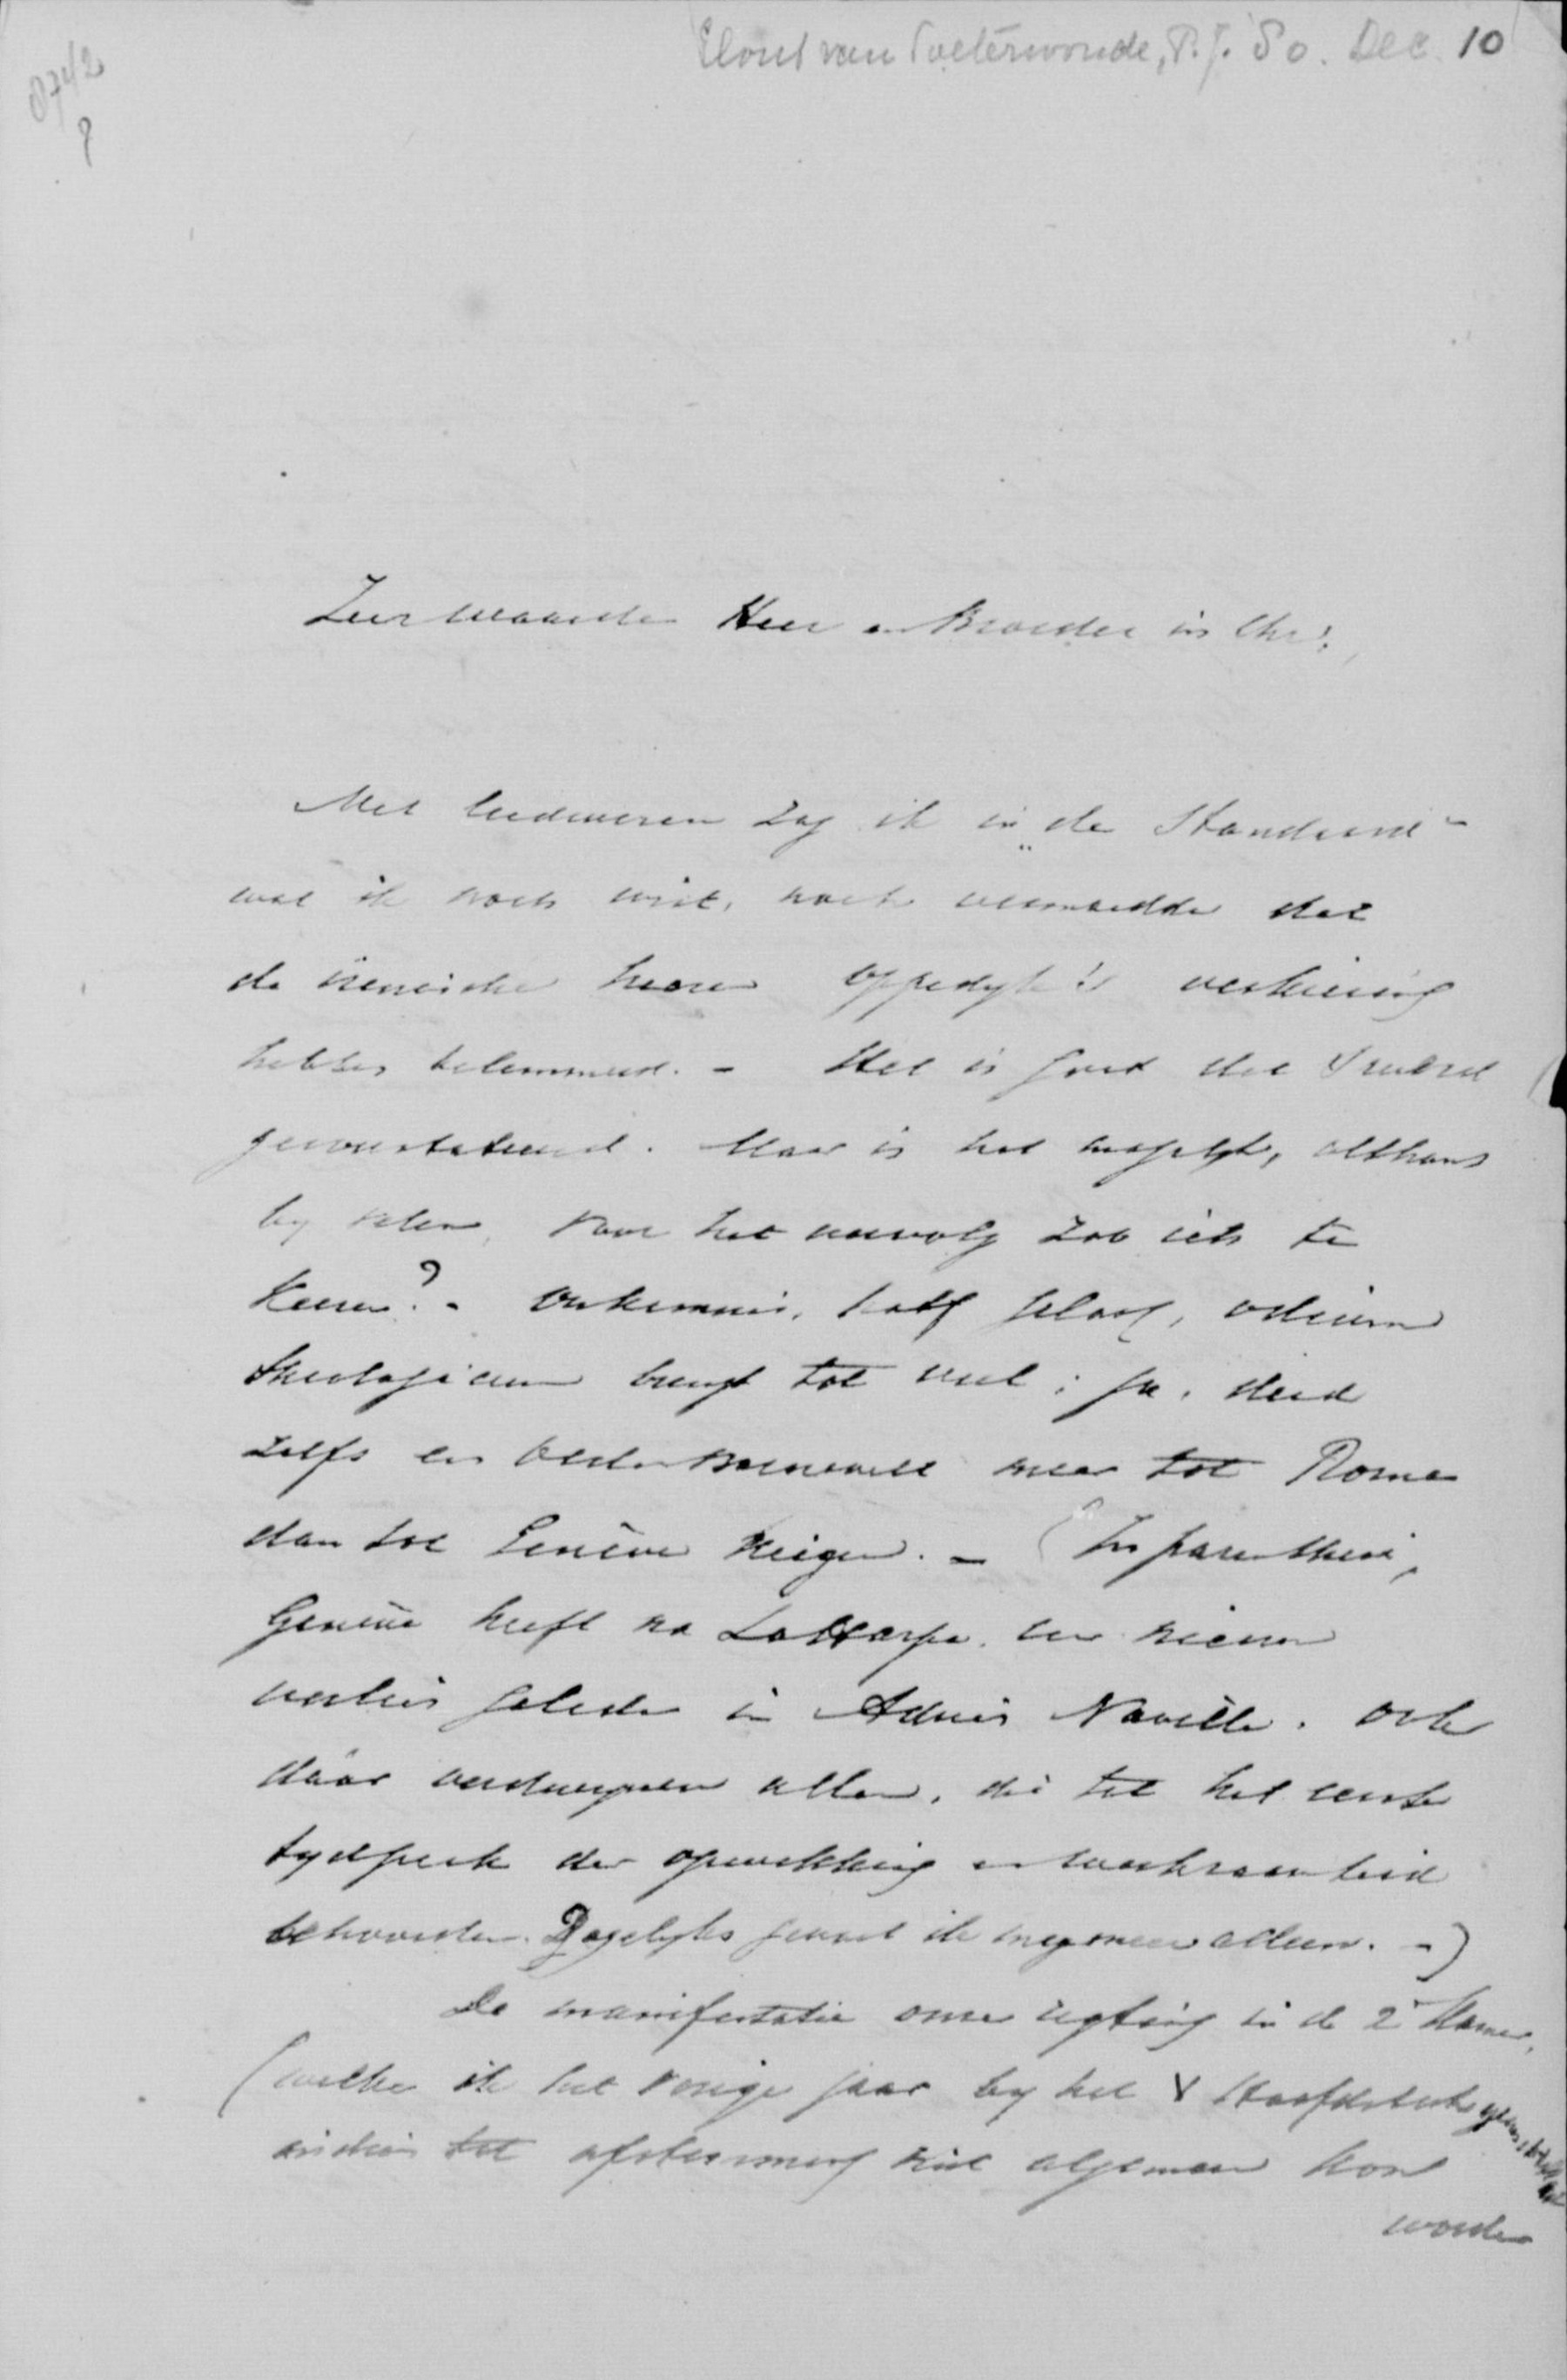 Elout van Soeterwoude, P.J. 80. Dec 10
Zeer waarde Heer en Broeder in Chr!,
Met leedwezen zag ik in „de Standaard"
wat ik noch wist, noch vermoedde dat
de irenische heeren Oppedyk's verkiezing
hebben belemmerd. - Het is goed dat
geconstateerd. Maar is het mogelyk, althans
by velen, voor het vervolg zoo iets te
keeren? - Onkennis, half geloof, odium
theologicum brengt tot veel; ja, deed
zelfs en Oldenbarnevelt meer tot Rome
dan tot Genève neigen. - (In parenthesi,
Genève heeft na LaHarpe, een nieuw
verlies geleden in Adrien Naville. Ook
dáár verdwynen allen, die tot het eerste
tydperk der opwekking en werkzaamheid
behoorden. Dagelyks gevoel ik my meer alleen. -)
De manifestatie onzer rigting in de 2e Kamer,
(welke ik het vorige jaar by het V Hoofdstuk
indien tot afstemming niet algemeen kon
worden